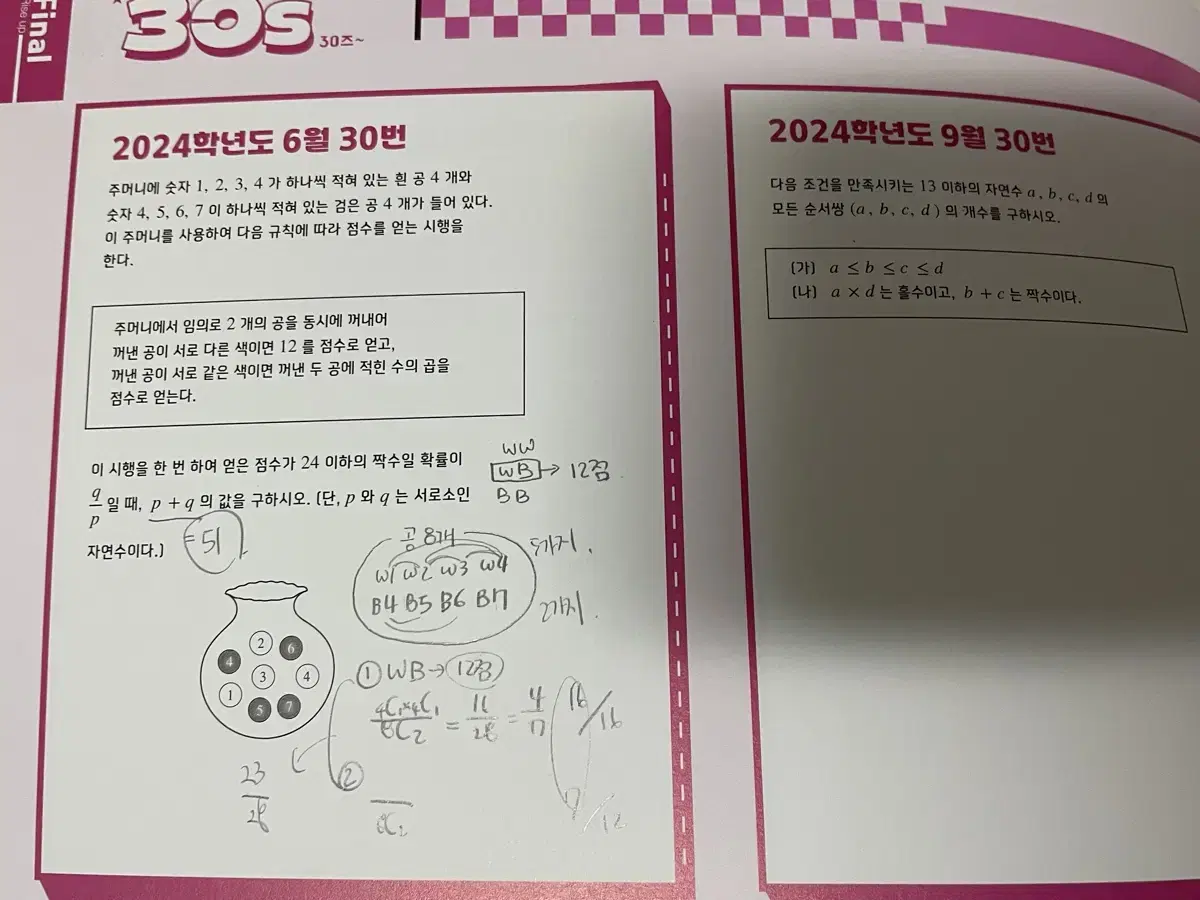 Final
Rise up
30s 30즈~
2024학년도 6월 30번
주머니에 숫자 1, 2, 3, 4 가 하나씩 적혀 있는 흰 공 4 개와
숫자 4, 5, 6, 7 이 하나씩 적혀 있는 검은 공 4 개가 들어 있다.
이 주머니를 사용하여 다음 규칙에 따라 점수를 얻는 시행을
한다.
주머니에서 임의로 2 개의 공을 동시에 꺼내어
꺼낸 공이 서로 다른 색이면 12 를 점수로 얻고,
꺼낸 공이 서로 같은 색이면 꺼낸 두 공에 적힌 수의 곱을
점수로 얻는다.
이 시행을 한 번 하여 얻은 점수가 24 이하의 짝수일 확률이
q/p 일 때, p + q 의 값을 구하시오. (단, p 와 q 는 서로소인
자연수이다.)
= 51
WW
WB → 12점
BB
공 8개
W1 W2 W3 W4 5가지.
B4 B5 B6 B7 2가지.
2 6
4 3 4
1 5 7
① WB → 12점
4C1×4C1/8C2 = 16/28 = 4/7 16/16
②
23/28 8C2
2024학년도 9월 30번
다음 조건을 만족시키는 13 이하의 자연수 a, b, c, d 의
모든 순서쌍 (a, b, c, d) 의 개수를 구하시오.
(가) a ≤ b ≤ c ≤ d
(나) a × d 는 홀수이고, b + c 는 짝수이다.